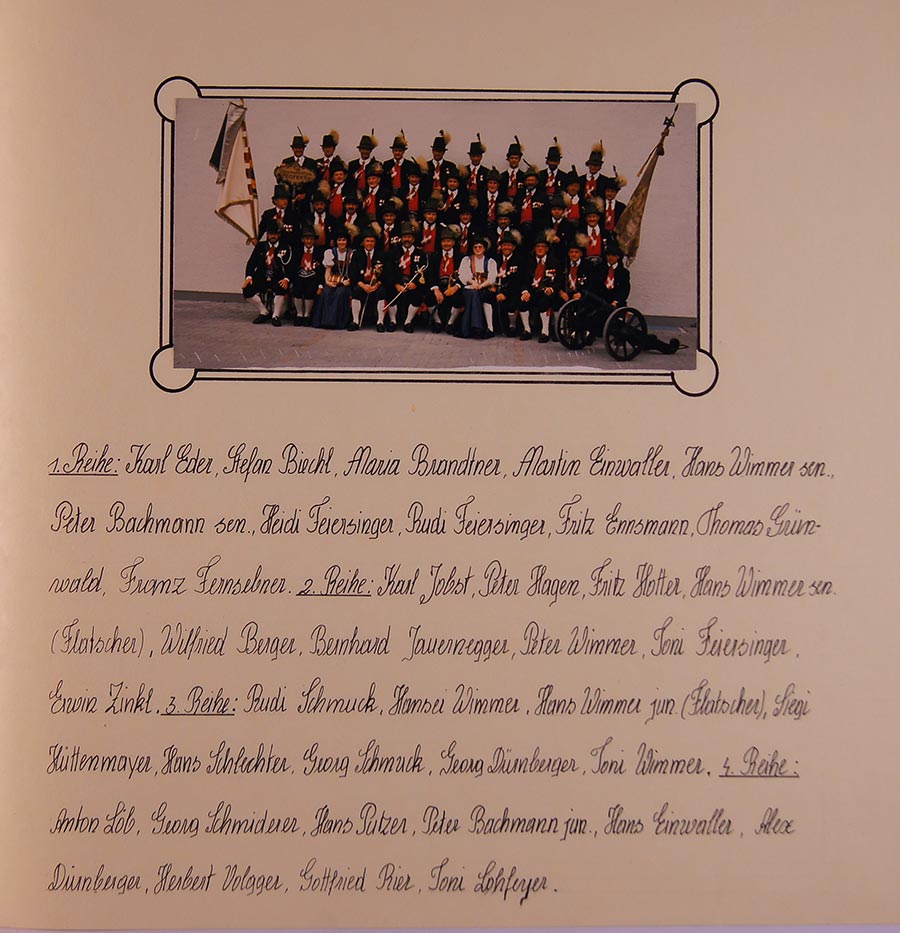 1. Reihe: Karl Eder, Stefan Biechl, Maria Brandtner, Martin Einwaller, Hans Wimmer sen.,
Peter Bachmann sen., Heidi Feiersinger, Rudi Feiersinger, Fritz Ennsmann, Thomas Grün-
wald, Franz Fernsebner. 2. Reihe: Karl Jobst, Peter Hagen, Fritz Hotter, Hans Wimmer sen.
(Flatscher), Wilfried Berger, Bernhard Jauernegger, Peter Wimmer, Toni Feiersinger,
Erwin Zinkl. 3. Reihe: Rudi Schmuck, Hansei Wimmer, Hans Wimmer jun. (Flatscher), Siegi
Hüttenmayer, Hans Schlechter, Georg Schmuck, Georg Dürnberger, Toni Wimmer. 4. Reihe:
Anton Löb, Georg Schmiderer, Hans Putzer, Peter Bachmann jun., Hans Einwaller, Alex
Dürnberger, Herbert Volgger, Gottfried Rier, Toni Lohfeyer.